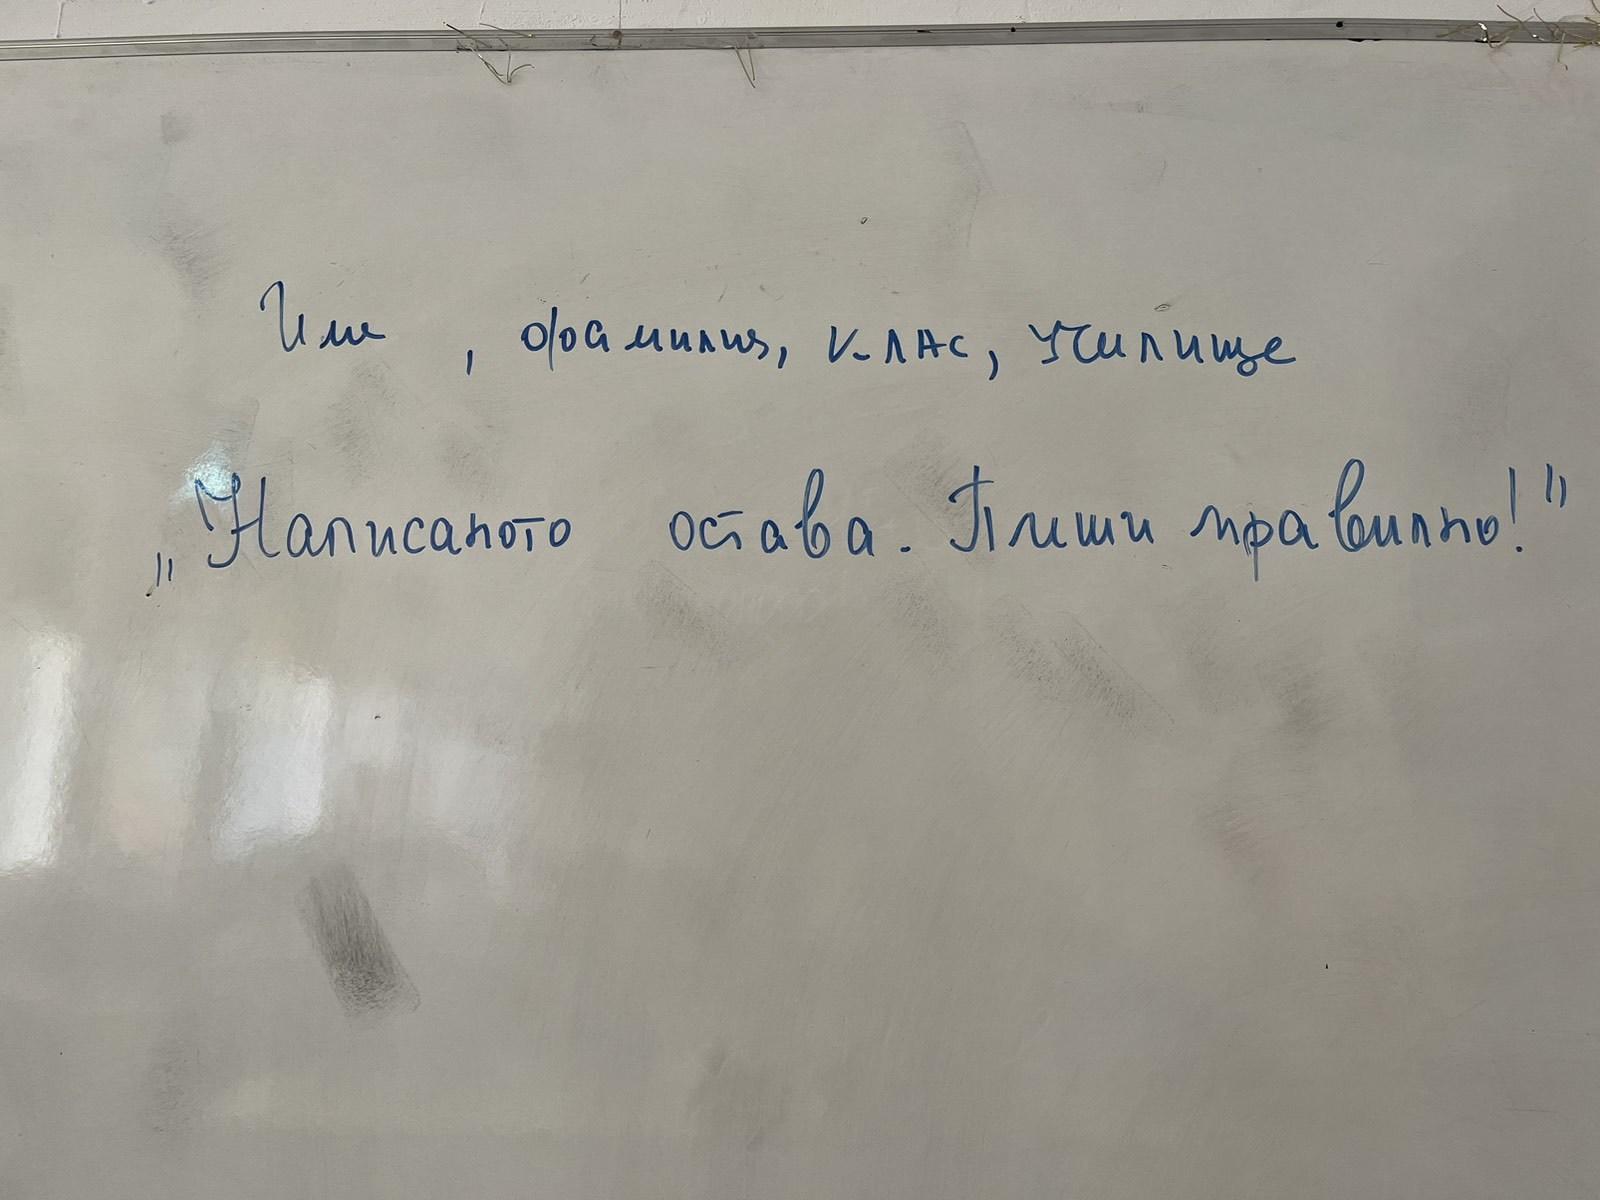 Име , фамилия, клас, училище
„Написаното остава. Пиши правилно!”